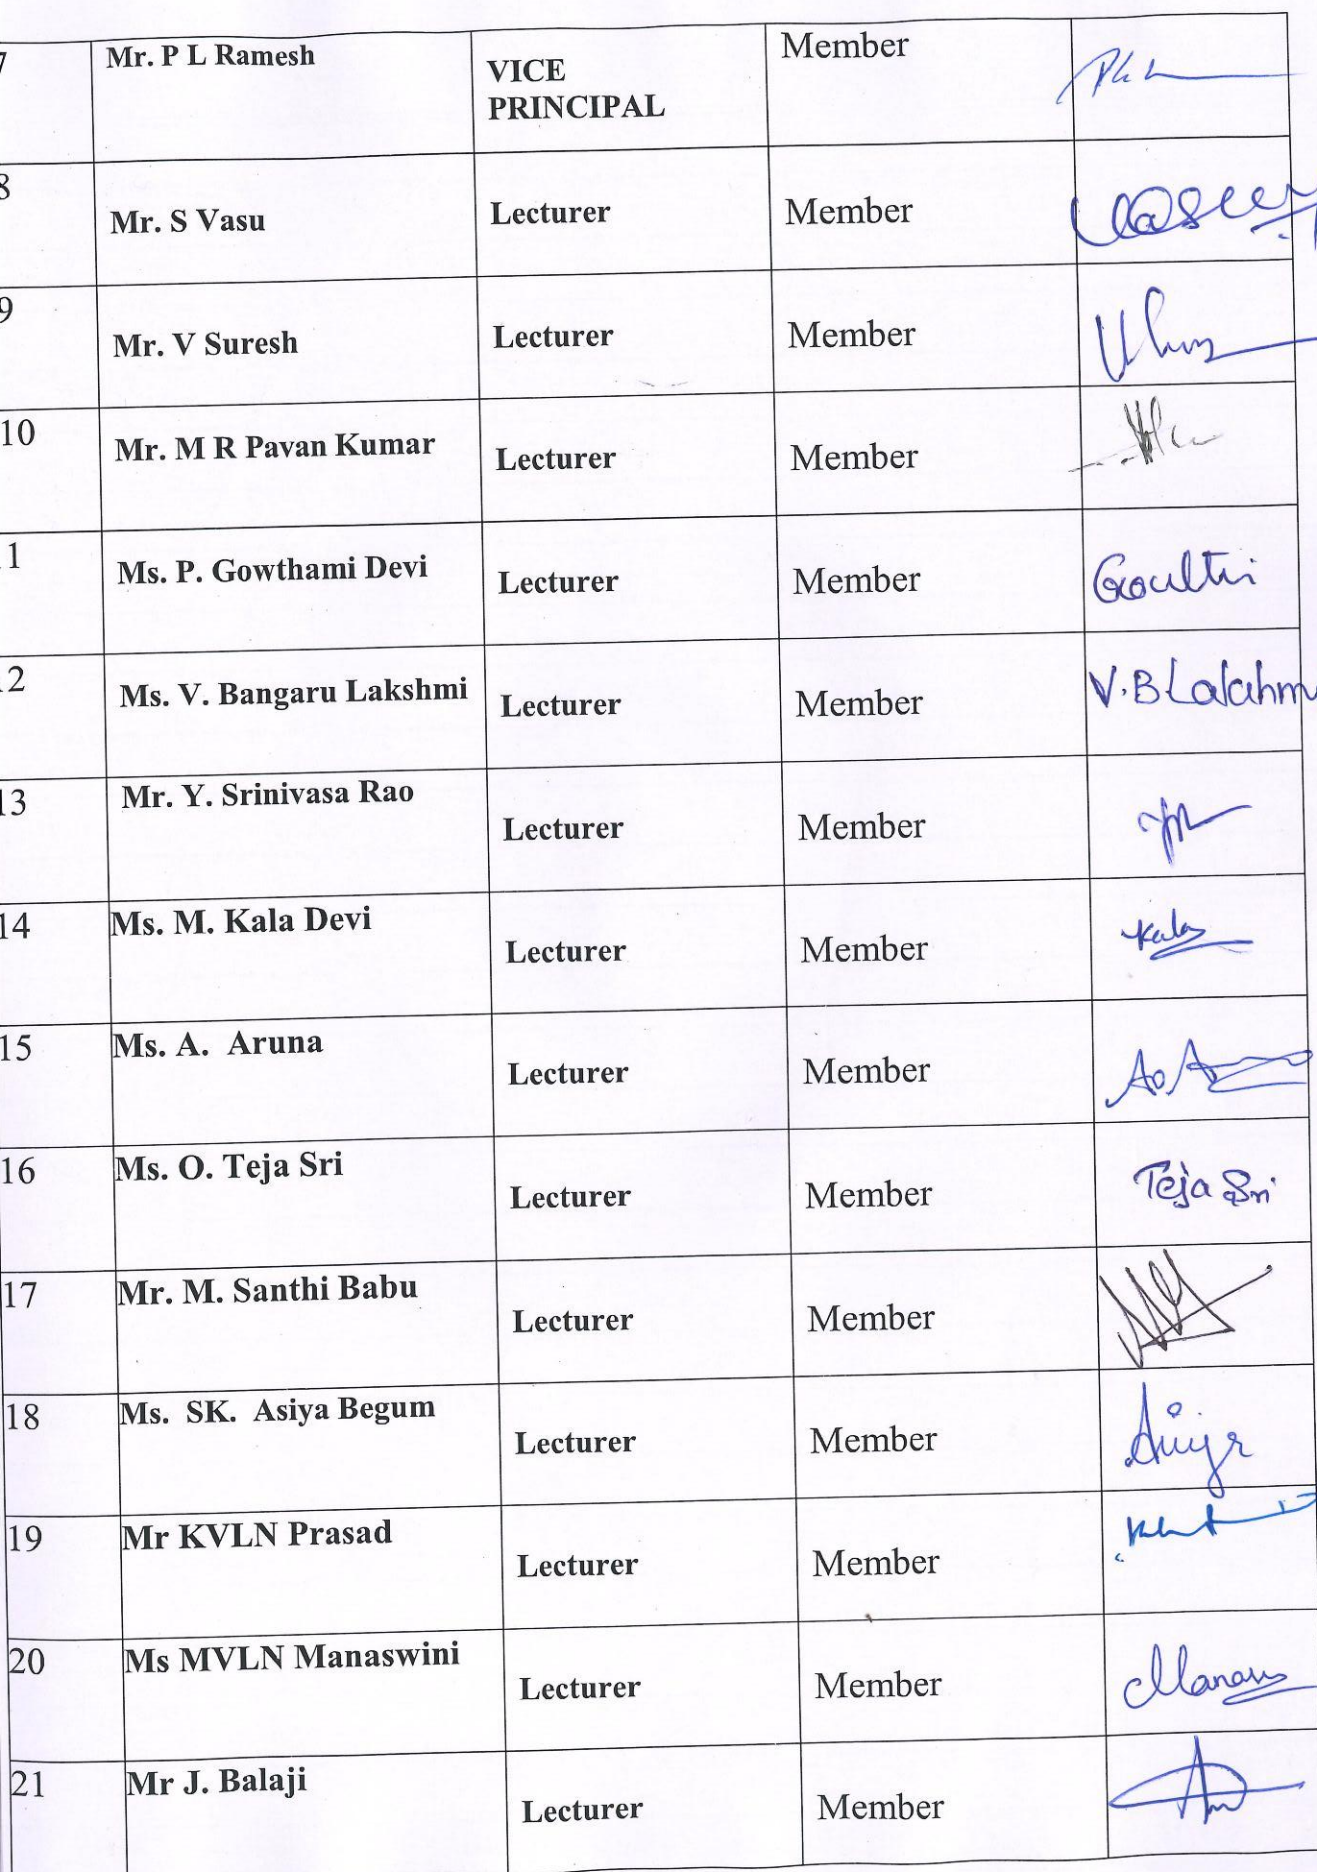 7 Mr. P L Ramesh VICE PRINCIPAL Member
8 Mr. S Vasu Lecturer Member
9 Mr. V Suresh Lecturer Member
10 Mr. M R Pavan Kumar Lecturer Member
11 Ms. P. Gowthami Devi Lecturer Member
12 Ms. V. Bangaru Lakshmi Lecturer Member V.B Lakshmi
13 Mr. Y. Srinivasa Rao Lecturer Member
14 Ms. M. Kala Devi Lecturer Member Kala
15 Ms. A. Aruna Lecturer Member
16 Ms. O. Teja Sri Lecturer Member Teja Sri
17 Mr. M. Santhi Babu Lecturer Member
18 Ms. SK. Asiya Begum Lecturer Member
19 Mr KVLN Prasad Lecturer Member
20 Ms MVLN Manaswini Lecturer Member
21 Mr J. Balaji Lecturer Member